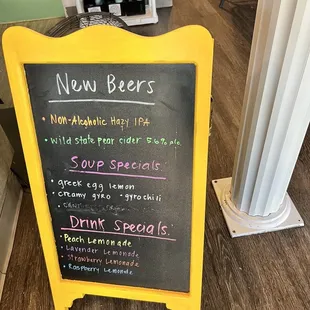 New Beers
• Non-Alcoholic Hazy IPA
• Wild state pear cider 5.6%
Soup Specials
• greek egg lemon
• creamy gyro • gyro chili
Drink Specials
• Peach Lemonade
• Lavender Lemonade
• Strawberry Lemonade
• Raspberry Lemonade